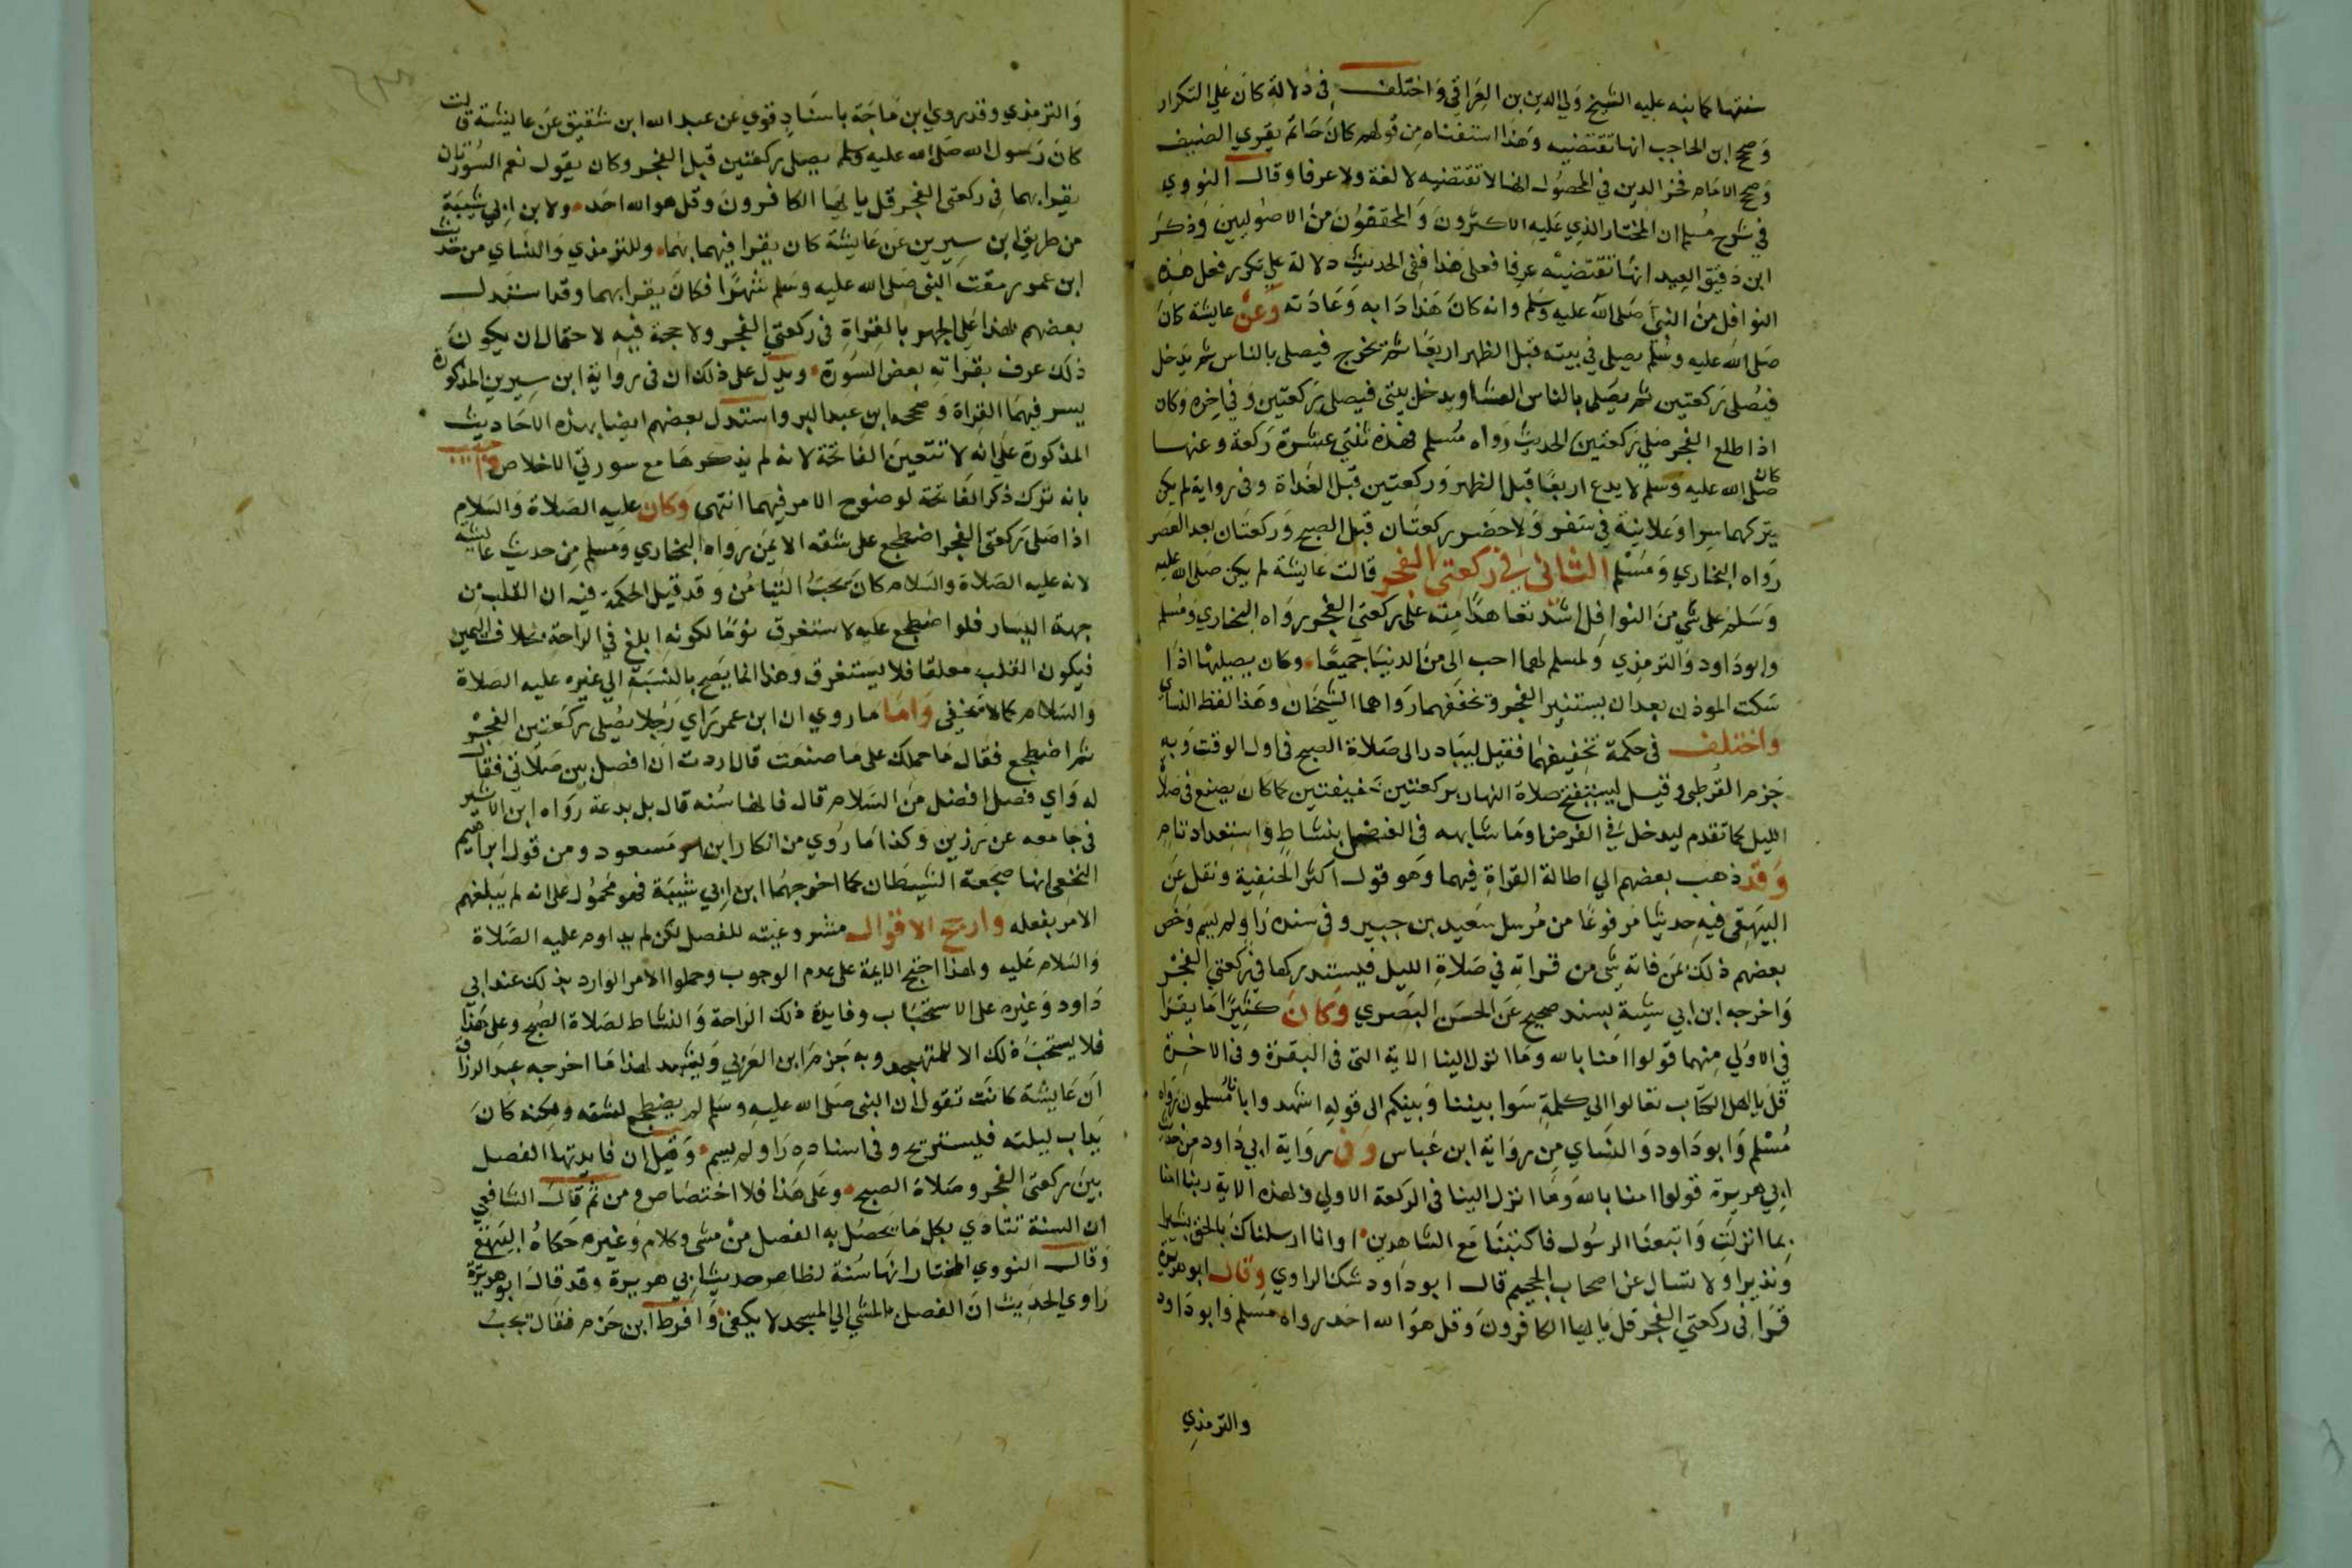 سنتها كما نبه عليه الشيخ ولي الدين بن العراقي واختلف في دلالة كان على التكرار
وصحح ابن الحاجب انها تقتضيه وهذا استفدناه من قولهم كان حاتم يقري الضيف
وصحح الامام فخر الدين في المحصول انها لا تقتضيه لا لغة ولا عرفا وقال النووي
في شرح مسلم ان المختار الذي عليه الاكثرون والمحققون من الاصوليين وذكر
ابن دقيق العيد انها تقتضيه عرفا فعلى هذا ففي الحديث دلالة على تكرر فعل هذه
النوافل من النبي صلى الله عليه وسلم وانه كان هذا دابه وعادته وعن عايشة كان
صلى الله عليه وسلم يصلي في بيته قبل الظهر اربعا ثم يخرج فيصلي بالناس ثم يدخل
فيصلي ركعتين ثم يصلي بالناس العشا ويدخل بيتي فيصلي ركعتين وفي اخره وكان
اذا طلع الفجر صلي ركعتين الحديث رواه مسلم فهذه ثنتي عشرة ركعة وعنها
كان صلى الله عليه وسلم لا يدع اربعا قبل الظهر وركعتين قبل الغداة وفي رواية لم يكن
يتركهما سرا وعلانية في سفر ولا حضر ركعتان قبل الصبح وركعتان بعد العصر
رواه البخاري ومسلم الثاني في ركعتي الفجر قالت عايشة لم يكن صلى الله عليه
وسلم على شي من النوافل اشد تعاهدا منه على ركعتي الفجر رواه البخاري ومسلم
وابو داود والترمذي ولمسلم لهما احب الى من الدنيا جميعا وكان يصليهما اذا
سكت الموذن بعد ان يستنير الفجر ويخففهما رواهما الشيخان وهذا لفظ النساي
واختلف في حكمة تخفيفهما فقيل ليبادر الى صلاة الصبح في اول الوقت وبه
جزم القرطبي وقيل ليستفتح صلاة النهار بركعتين خفيفتين كما كان يصنع في صلاة
الليل كما تقدم ليدخل في الفرض او ما شابهه في الفضل بنشاط واستعداد تام
وقد ذهب بعضهم الي اطالة القراة فيهما وهو قول اكثر الحنفية ونقل عن
البيهقي فيه حديثا مرفوعا من مرسل سعيد بن جبير وفي سنده راو لم يسم وخص
بعضهم ذلك بمن فاته شي من قراته في صلاة الليل فيستدركها في ركعتي الفجر
واخرجه ابن ابي شيبة بسند صحيح عن الحسن البصري وكان كثيرا ما يقرا
في الاولي منهما قولوا امنا بالله وما انزل الينا الاية التي في البقرة وفي الاخرة
قل يا اهل الكتاب تعالوا الي كلمة سوا بيننا وبينكم الى قوله اشهدوا بانا مسلمون رواه
مسلم وابو داود والنساي من رواية ابن عباس وفي رواية ابي داود من حديث
ابي هريرة قولوا امنا بالله وما انزل الينا في الركعة الاولي وبهذه الاية ربنا امنا
بما انزلت واتبعنا الرسول فاكتبنا مع الشاهدين او انا ارسلناك بالحق بشيرا
ونذيرا ولا تسال عن اصحاب الجحيم قال ابو داود شك الراوي وقال ابو هريرة
قرا في ركعتي الفجر قل يا ايها الكافرون وقل هو الله احد رواه مسلم وابو داود
والترمذي
والترمذي وقد روي ابن ماجة باسناد قوي عن عبد الله ابن شقيق عن عايشة قالت
كان رسول الله صلى الله عليه وسلم يصلي ركعتين قبل الفجر وكان يقول نعم السورتان
يقرا بهما في ركعتي الفجر قل يا ايها الكافرون وقل هو الله احد ولابن ابي شيبة
من طريق ابن سيرين عن عايشة كان يقرا فيهما بهما وللترمذي والنساي من حديث
ابن عمر رمقت النبي صلى الله عليه وسلم شهرا فكان يقرا بهما وقد استدل
بعضهم بهذا على الجهر بالقراة في ركعتي الفجر ولا حجة فيه لاحتمال ان يكون
ذلك عرف بقراته بعض السورة ويدل على ذلك ان في رواية ابن سيرين المذكورة
يسر فيهما القراة وصححه ابن عبد البر واستدل بعضهم ايضا بهذه الاحاديث
المذكورة على انه لا تتعين الفاتحة لانه لم يذكرها مع سورتي الاخلاص واجيب
بانه ترك ذكر الفاتحة لوضوح الامر فيهما انتهى وكان عليه الصلاة والسلام
اذا صلى ركعتي الفجر اضطجع على شقه الايمن رواه البخاري ومسلم من حديث عايشة
لانه عليه الصلاة والسلام كان يحب التيامن وقد قيل الحكمة فيه ان القلب من
جهة اليسار فلو اضطجع عليه لاستغرق نوما لكونه ابلغ في الراحة بخلاف اليمين
فيكون القلب معلقا فلا يستغرق وهذا انما يصح بالنسبة الي غيره عليه الصلاة
والسلام كما لا يخفي واما ما روي ان ابن عمر راي رجلا يصلي ركعتين الفجر
ثم اضطجع فقال ما حملك على ما صنعت قال اردت ان افصل بين صلاتي فقال
له واي فصل افضل من السلام قال فانها سنه قال بل بدعة رواه ابن الاثير
في جامعه عن رزين وكذا ما روي من انكار ابن مسعود ومن قول ابراهيم
النخعي انها ضجعة الشيطان كما اخرجهما ابن ابي شيبة فهو محمول على انه لم يبلغهم
الامر بفعله وارجح الاقوال مشروعيته للفصل لكن لم يداوم عليه الصلاة
والسلام عليه ولهذا احتج الايمة على عدم الوجوب وحملوا الامر الوارد بذلك عند ابي
داود وغيره على الاستحباب وفايدة ذلك الراحة والنشاط لصلاة الصبح وعلى هذا
فلا يستحب ذلك الا للمتهجد وبه جزم ابن العربي ويشهد لهذا ما اخرجه عبد الرزاق
ان عايشة كانت تقول ان النبي صلى الله عليه وسلم لم يضطجع لسنته ولكنه كان
يداب ليلته فيستريح وفي اسناده راو لم يسم وقيل ان فايدتها الفصل
بين ركعتي الفجر وصلاة الصبح وعلى هذا فلا اختصاص ومن ثم قال الشافعي
ان السنة تتادي بكل ما يحصل به الفصل من مشي وكلام وغيره حكاه البيهقي
وقال النووي المختار انها سنة لظاهر حديث ابي هريرة وقد قال ابو هريرة
راوي الحديث ان الفصل بالمشي الي المسجد لا يكفي وافرط ابن حزم فقال تجب